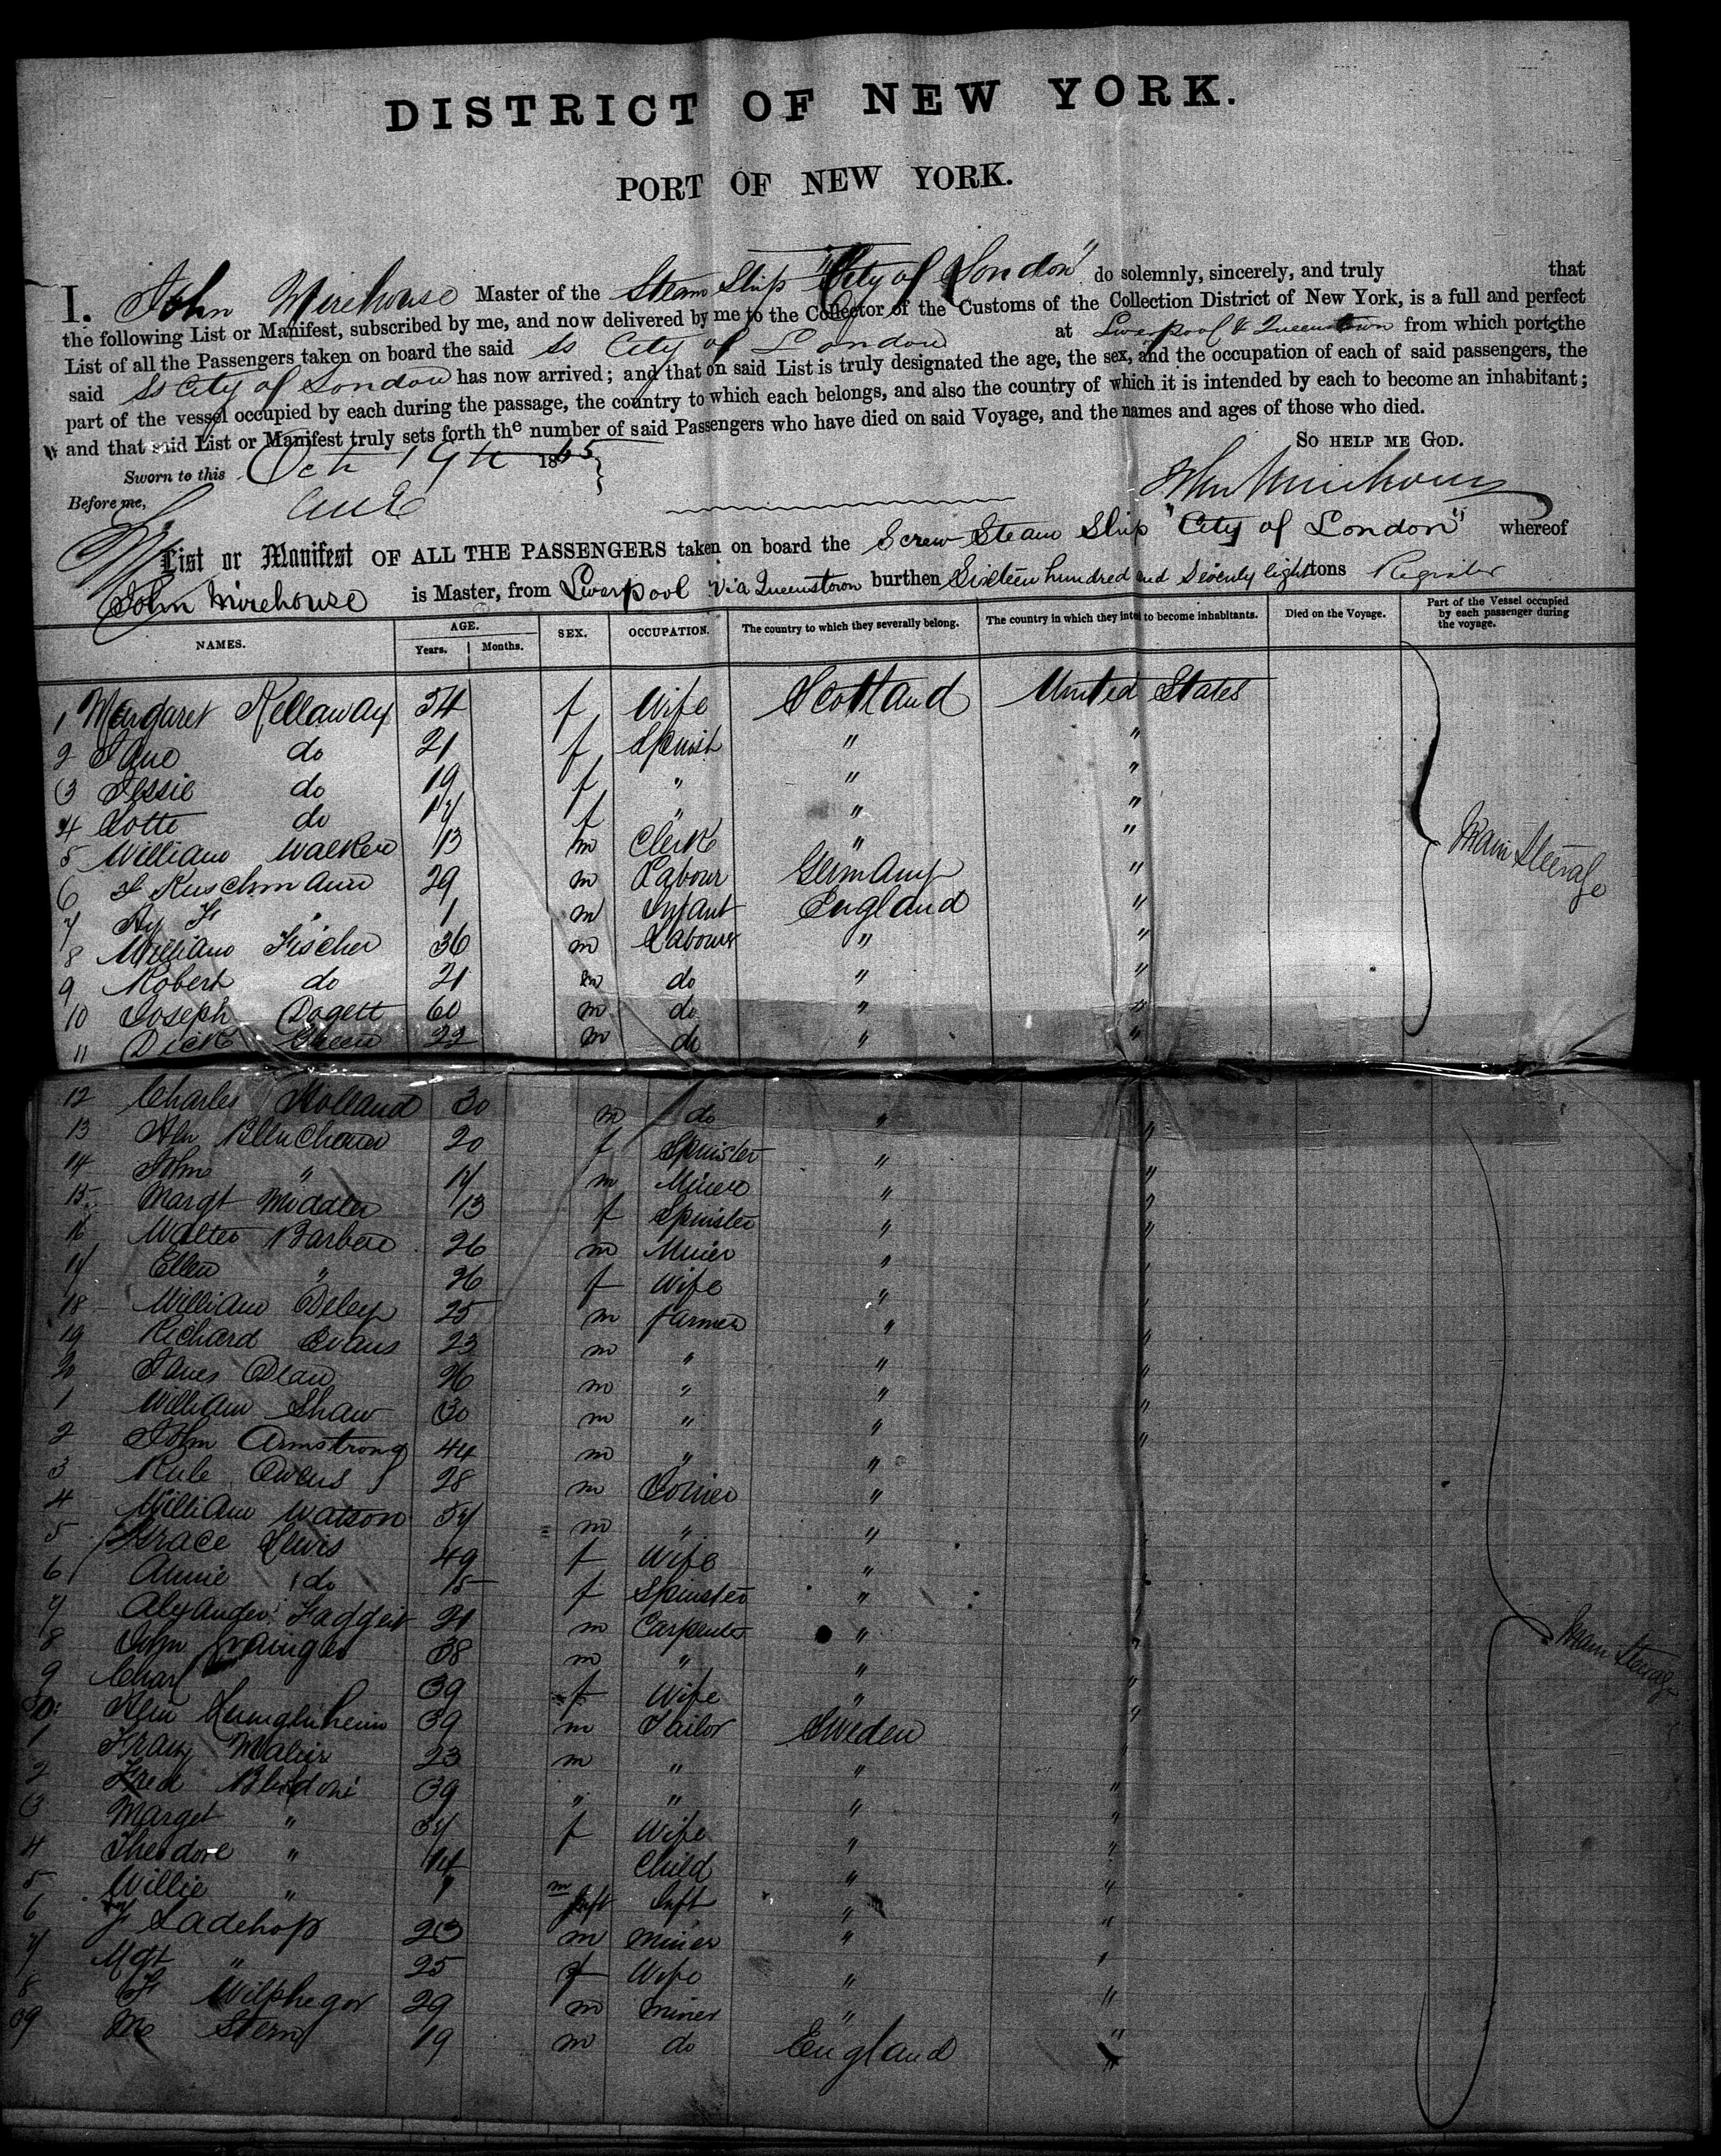 DISTRICT OF NEW YORK.
PORT OF NEW YORK.
I. John Mirehouse Master of the Steam Ship "City of London" do solemnly, sincerely, and truly that
the following List or Manifest, subscribed by me, and now delivered by me to the Collector of the Customs of the Collection District of New York, is a full and perfect
List of all the Passengers taken on board the said Ss City of London at Liverpool & Queenstown from which ports the
said Ss City of London has now arrived; and that on said List is truly designated the age, the sex, and the occupation of each of said passengers, the
part of the vessel occupied by each during the passage, the country to which each belongs, and also the country of which it is intended by each to become an inhabitant;
and that said List or Manifest truly sets forth the number of said Passengers who have died on said Voyage, and the names and ages of those who died.
SO HELP ME GOD.
Sworn to this Oct 19th 1865
John Mirehouse
Before me,
List or Manifest OF ALL THE PASSENGERS taken on board the Screw Steam Ship "City of London" whereof
John Mirehouse is Master, from Liverpool via Queenstown burthen Sixteen hundred and Seventy Eight tons Register
NAMES. AGE. Years. Months. SEX. OCCUPATION. The country to which they severally belong. The country in which they intend to become inhabitants. Died on the Voyage. Part of the Vessel occupied by each passenger during the voyage.
1 Margaret Kellaway 54 f Wife Scotland United States
2 Jane do 21 f Spinst " "
3 Jessie do 19 f " " "
4 Lotte do 17 f " " "
5 William Walker 13 m Clerk " "
Main Steerage
6 F Ruschmann 29 m Labour Germany "
7 Hy F 1 m Infant England "
8 William Fischer 36 m Labourer " "
9 Robert do 21 m do " "
10 Joseph Dogett 60 m do " "
11 Dick Green 22 m do " "
12 Charles Holland 30 m do " "
13 Blenchard 20 f Spinster " "
14 John " 17 m Miner " "
15 Margt Moddler 13 f Spinster " "
16 Walter Barber 26 m Miner " "
17 Ellen " 26 f Wife " "
18 William Deley 25 m Farmer " "
19 Richard Evans 23 m " " "
20 James Dean 26 m " " "
1 William Shaw 30 m " " "
2 John Armstrong 44 m " " "
3 Owens 28 m Joiner "
4 William Watson 57 m " "
5 Grace Lewis 49 f Wife "
6 Annie do 15 f Spinster " "
7 Alexander 21 m Carpenter " "
8 John Grainger 38 m " " "
Main Steerage
9 Charl 39 f Wife " "
30 39 m Tailor Sweden "
1 Franz 23 m " " "
2 Fred 39 " " " "
3 Marget " 37 f Wife " "
4 Theodore " 14 Child " "
5 Willie " 1 m Inft " "
6 F Ladehop 23 m Miner " "
7 Mgt " 25 f Wife " "
8 F Wilphegor 29 m Miner " "
39 M Stern 19 m do England "